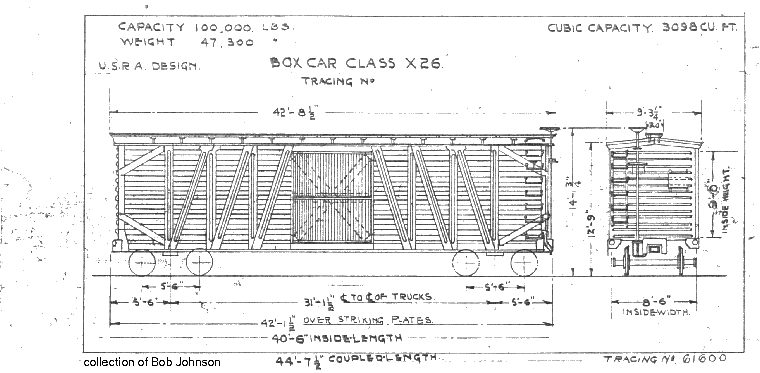 CAPACITY 100,000. LBS.
WEIGHT 47,300 "
CUBIC CAPACITY. 3098 CU. FT.
U.S.R.A. DESIGN.
BOX CAR CLASS X26.
TRACING Nº
42'-8½"
9'-3¼"
14'-¾"
12'-9"
9'-0"
INSIDE HEIGHT.
5'-6"
5'-6"
5'-6"
31'-1½" ℄ TO ℄ OF TRUCKS.
5'-6"
8'-6"
INSIDE WIDTH.
42'-1½" OVER STRIKING PLATES.
40'-6" INSIDE LENGTH
44'-7½" COUPLED LENGTH
collection of Bob Johnson
TRACING Nº 61600